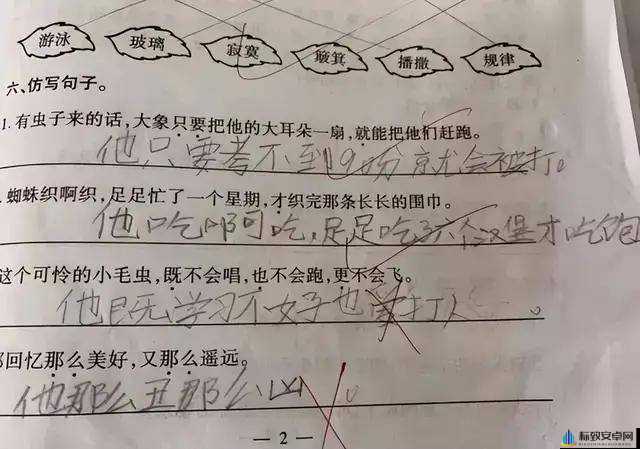 游泳 玻璃 寂寞 簸箕 播撒 规律
六、仿写句子。
1. 有虫子来的话，大象只要把他的大耳朵一扇，就能把他们赶跑。
他只要考不到90分就会被打。
. 蜘蛛织啊织，足足忙了一个星期，才织完那条长长的围巾。
他吃啊吃，足足吃了六个汉堡才吃饱
这个可怜的小毛虫，既不会唱，也不会跑，更不会飞。
他既学习不好也 打人 。
回忆那么美好，又那么遥远。
他那么丑那么凶。
— 2 —
标致安卓网